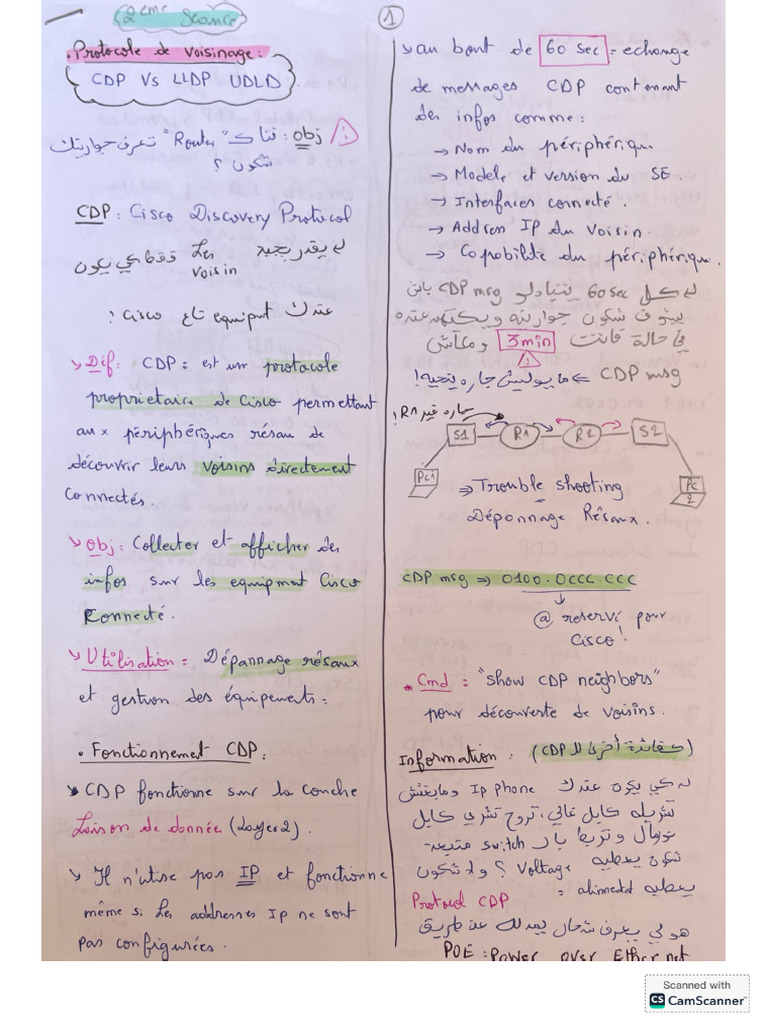 2ème Seance
1
• Protocole de voisinage :
CDP Vs LLDP UDLD
obj : "Router" تعرف جواريتك
شكون ؟
CDP : Cisco Discovery Protocol
لي يقدر يجيد Les voisin فقط كي يكون
عندك equiput تاع Cisco !
Def : CDP : est un protocole
proprietaire de Cisco permettant
aux périphériques résau de
découvrir leurs voisins directement
Connectés.
Obj : Collecter et afficher des
infos sur les equipment Cisco
Connecté.
Utilisation : Dépannage résaux
et gestion des équipements.
• Fonctionnement CDP :
CDP fonctionne sur la couche
Liaison de donnée (Layer 2).
Il n'utise pas IP et fonctionne
même si Les addresses Ip ne sont
pas configurées.
au bout de 60 sec = echange
de messages CDP contenant
des infos comme :
→ Nom du périphériqu
→ Modele et version du SE.
→ Interfaces connecté.
→ Address IP du Voisin.
→ Capabilite du périphérique.
لي كل 60 sec يتبادلو CDP msg باش
يشوف شكون جواريته و يكتبهم عنده
في حالة فاتت 3 min و معاش
CDP msg ⇐ ما يوليش جاره ينحيه!
جاره غير R1!
S1 R1 R2 S2
Pc1
Pc 2
⇒ Trouble shooting
Déponnage Résaux.
CDP msg ⇒ 0100.0CCC.CCC
@ reservé pour
Cisco!
* Cmd : "show CDP neighbors"
pour découverte de voisins.
Information . (كفائدة أخرى لل CDP)
كي يكون عندك Ip phone و مابغيتش
تشريله كابل غالي، تروح تشري كابل
نورمال و تربط بال switch متبعد
شكون يعطيه Voltage ؟ ولا شكون
يعطيه alimentat =
Protocol CDP
هو لي يعرف شحال يمدله عن طريق
POE : Power over Ethernet
Scanned with
CS CamScanner